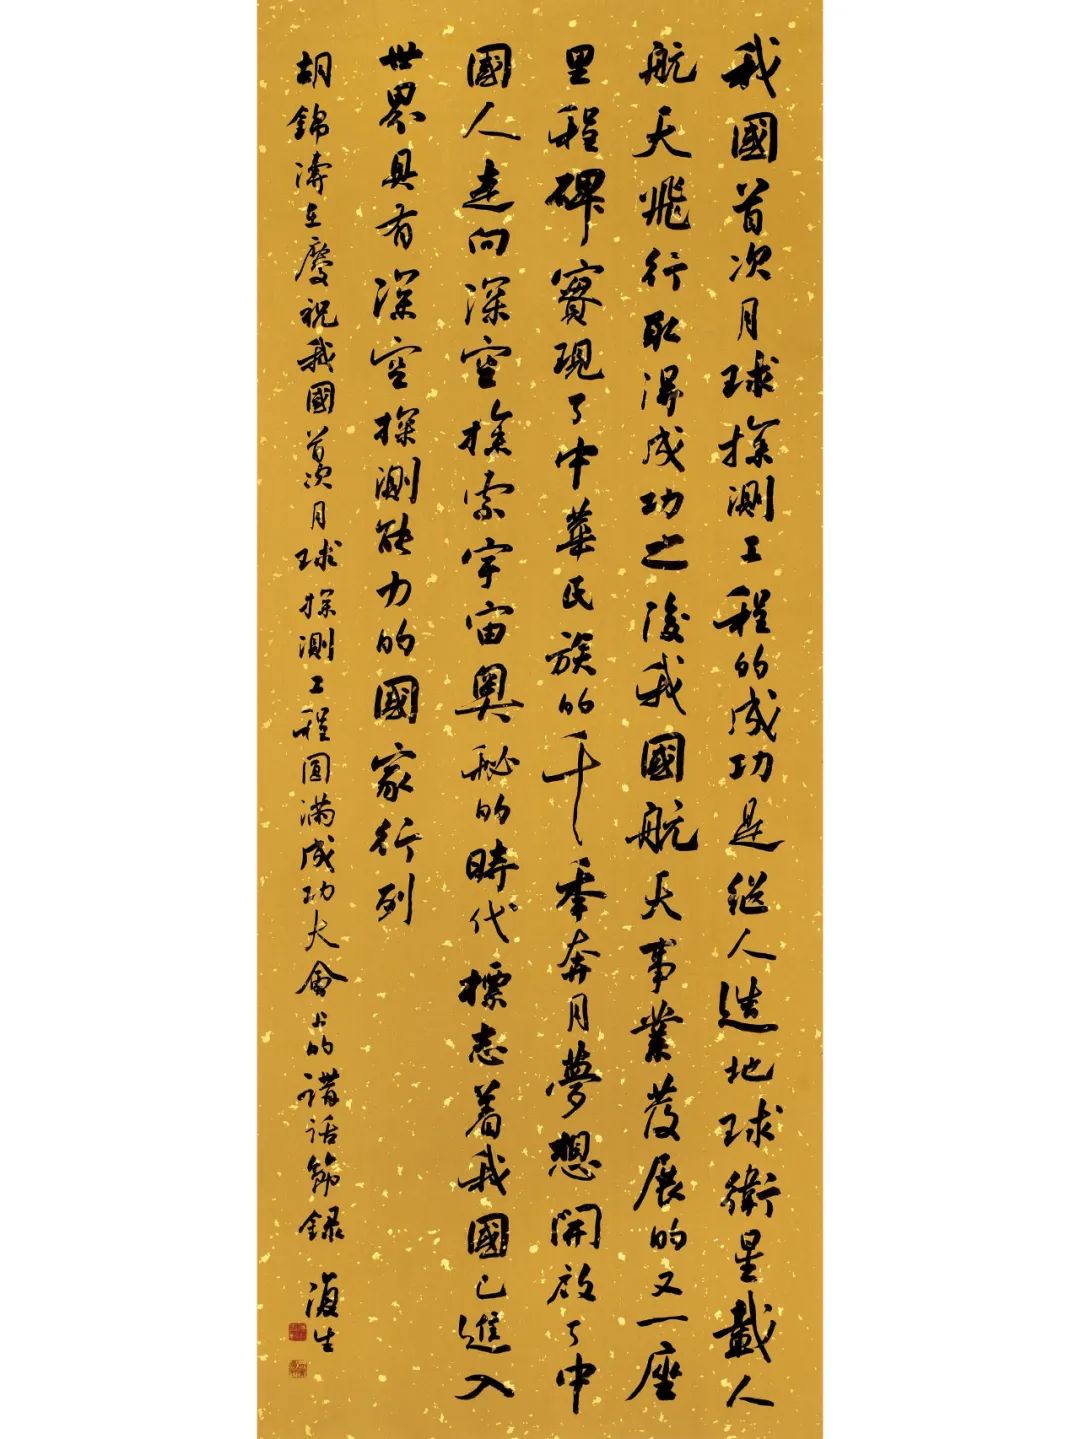 我國首次月球探測工程的成功是继人造地球衛星載人
航天飛行取得成功之後我國航天事業發展的又一座
里程碑實現了中華民族的千年奔月夢想開啟了中
國人走向深空探索宇宙奧秘的時代標志着我國已進入
世界具有深空探測能力的國家行列
胡錦濤在慶祝我國首次月球探測工程圓滿成功大會上的講話節錄 海生